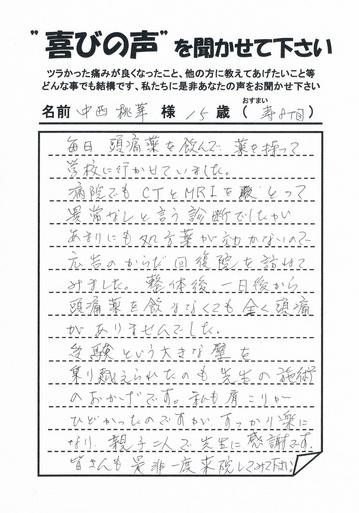 "喜びの声"を聞かせて下さい
ツラかった痛みが良くなったこと、他の方に教えてあげたいこと等
どんな事でも結構です、私たちに是非あなたの声をお聞かせ下さい
おすまい
名前 中西 様 15歳(寿8丁目)
毎日 頭痛薬を飲んで 薬を持って
学校に行かせていました。
病院でもCTとMRIをとって
異常なしと言う診断でしたが
あまりにも処方薬が効かないので
広告のからだ回復院を訪ねて
みました。整体後、一日後から
頭痛薬を飲まなくても全く頭痛
がありませんでした。
受験という大きな壁を
乗り越えられたのも先生の施術
のおかげです。私も肩こりが
ひどかったのですが、すっかり楽に
なり、親子二人で先生に感謝です。
皆さんも是非一度来院してみて下さい